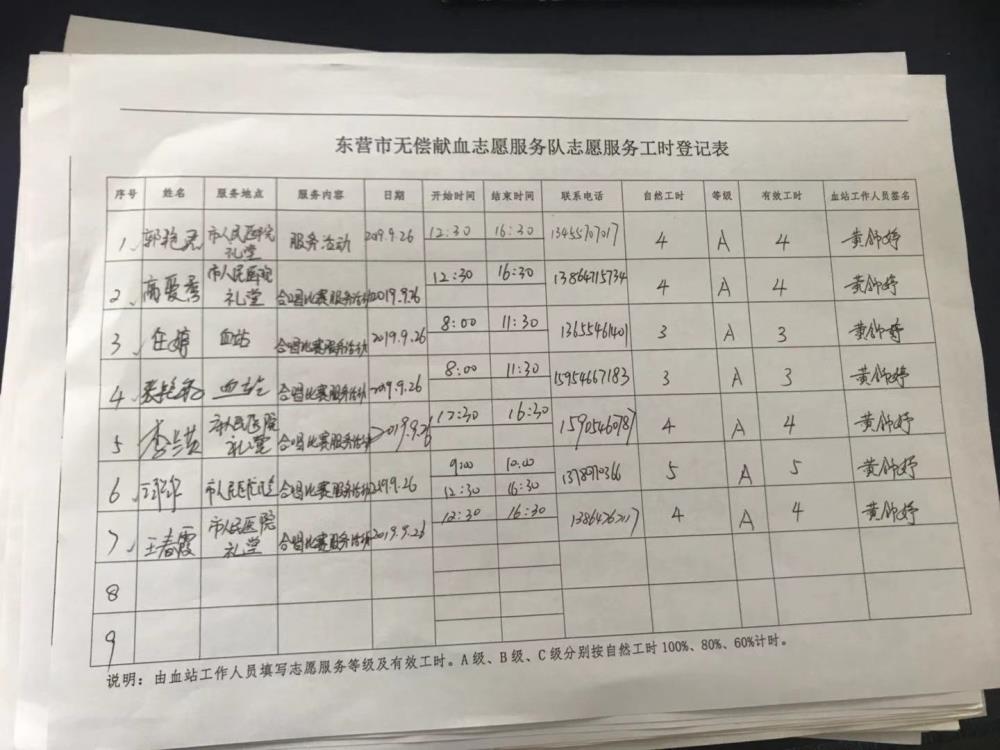 东营市无偿献血志愿服务队志愿服务工时登记表
序号 姓名 服务地点 服务内容 日期 开始时间 结束时间 联系电话 自然工时 等级 有效工时 血站工作人员签名
1、 郭艳灵 市人民医院礼堂 服务活动 2019.9.26 12:30 16:30 13455707017 4 A 4 黄帅婷
2、 高爱秀 市人民医院礼堂 合唱比赛服务活动 2019.9.26 12:30 16:30 13864715734 4 A 4 黄帅婷
3、 任婷 血站 合唱比赛服务活动 2019.9.26 8:00 11:30 13655461401 3 A 3 黄帅婷
4、 血站 合唱比赛服务活动 2019.9.26 8:00 11:30 15954667183 3 A 3 黄帅婷
5、 李兰英 市人民医院礼堂 合唱比赛服务活动 2019.9.26 12:30 16:30 4 A 4 黄帅婷
6、 市人民医院礼堂 合唱比赛服务活动 2019.9.26 9:00 10:00 5 A 5 黄帅婷
12:30 16:30
7、 王春霞 市人民医院礼堂 合唱比赛服务活动 2019.9.26 12:30 16:30 4 A 4 黄帅婷
8
9
说明：由血站工作人员填写志愿服务等级及有效工时。A级、B级、C级分别按自然工时100%、80%、60%计时。